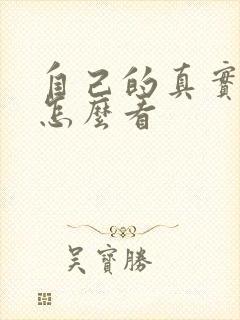 自己的真實
怎麼看
吳寶勝